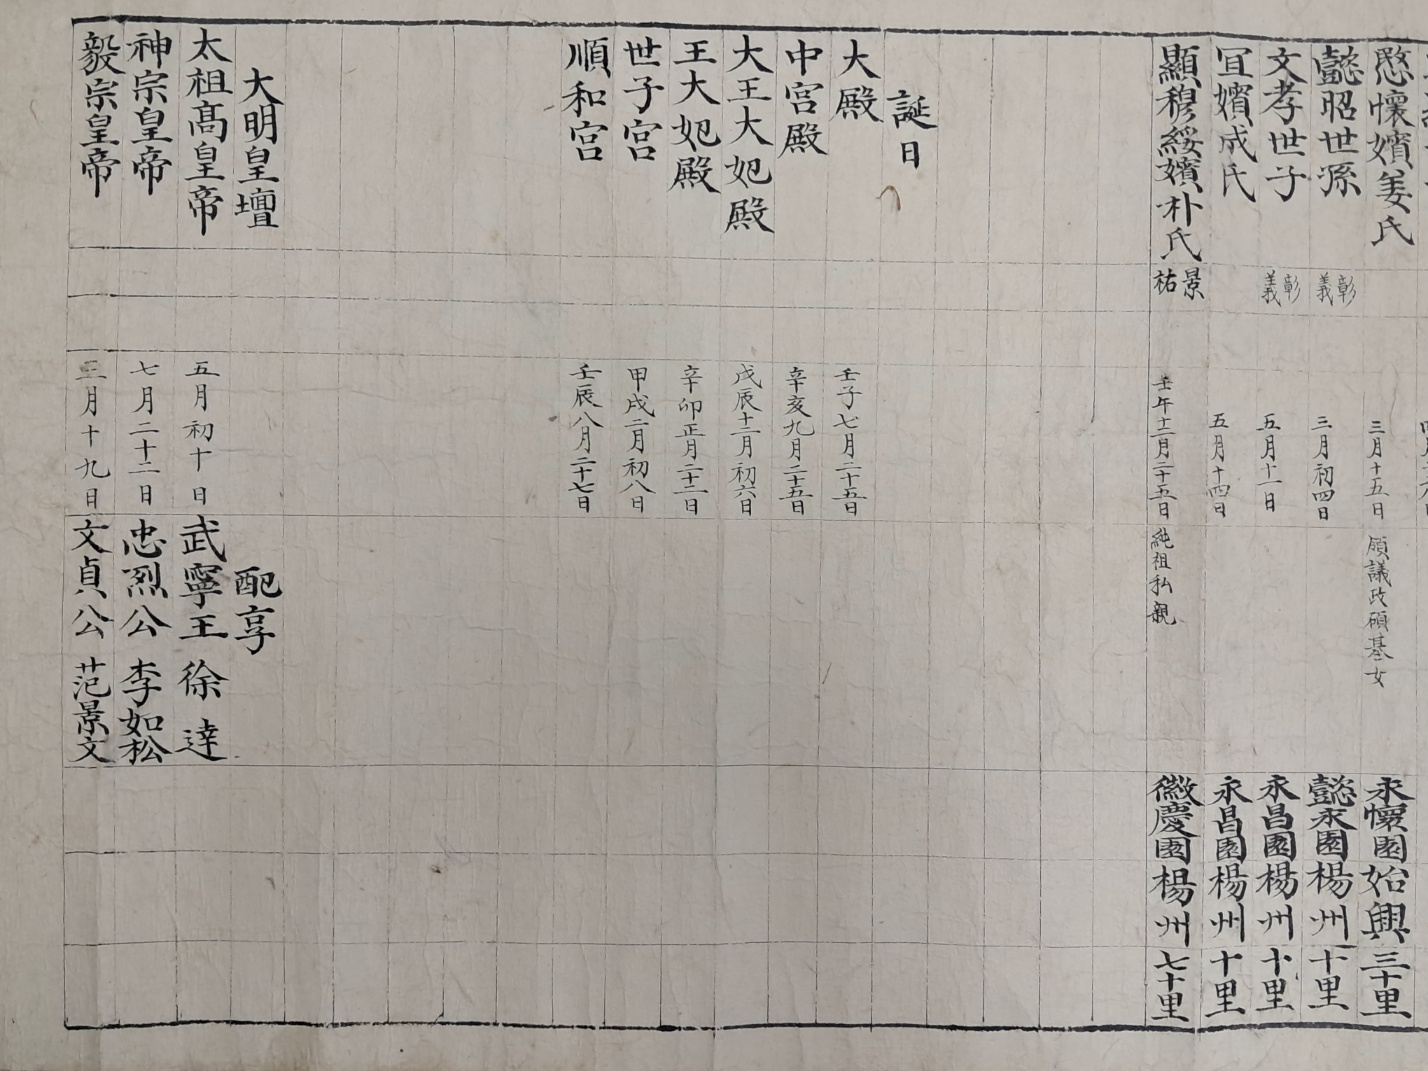 愍懷嬪姜氏 三月十五日 領議政碩基女 永懷園始興 三十里
懿昭世孫 彰義 三月初四日 懿永園楊州 十里
文孝世子 彰義 五月十一日 永昌園楊州 十里
冝嬪成氏 五月十四日 永昌園楊州 十里
顯穆綏嬪朴氏 景祐 壬午十二月二十五日 純祖私親 徽慶園楊州 七十里
誕日
大殿 壬子七月二十五日
中宮殿 辛亥九月二十五日
大王大妃殿 戊辰十二月初六日
王大妃殿 辛卯正月二十二日
世子宮 甲戌二月初八日
順和宮 壬辰八月二十七日
大明皇壇 配享
太祖髙皇帝 五月初十日 武寧王 徐達
神宗皇帝 七月二十二日 忠烈公 李如松
毅宗皇帝 三月十九日 文貞公 范景文